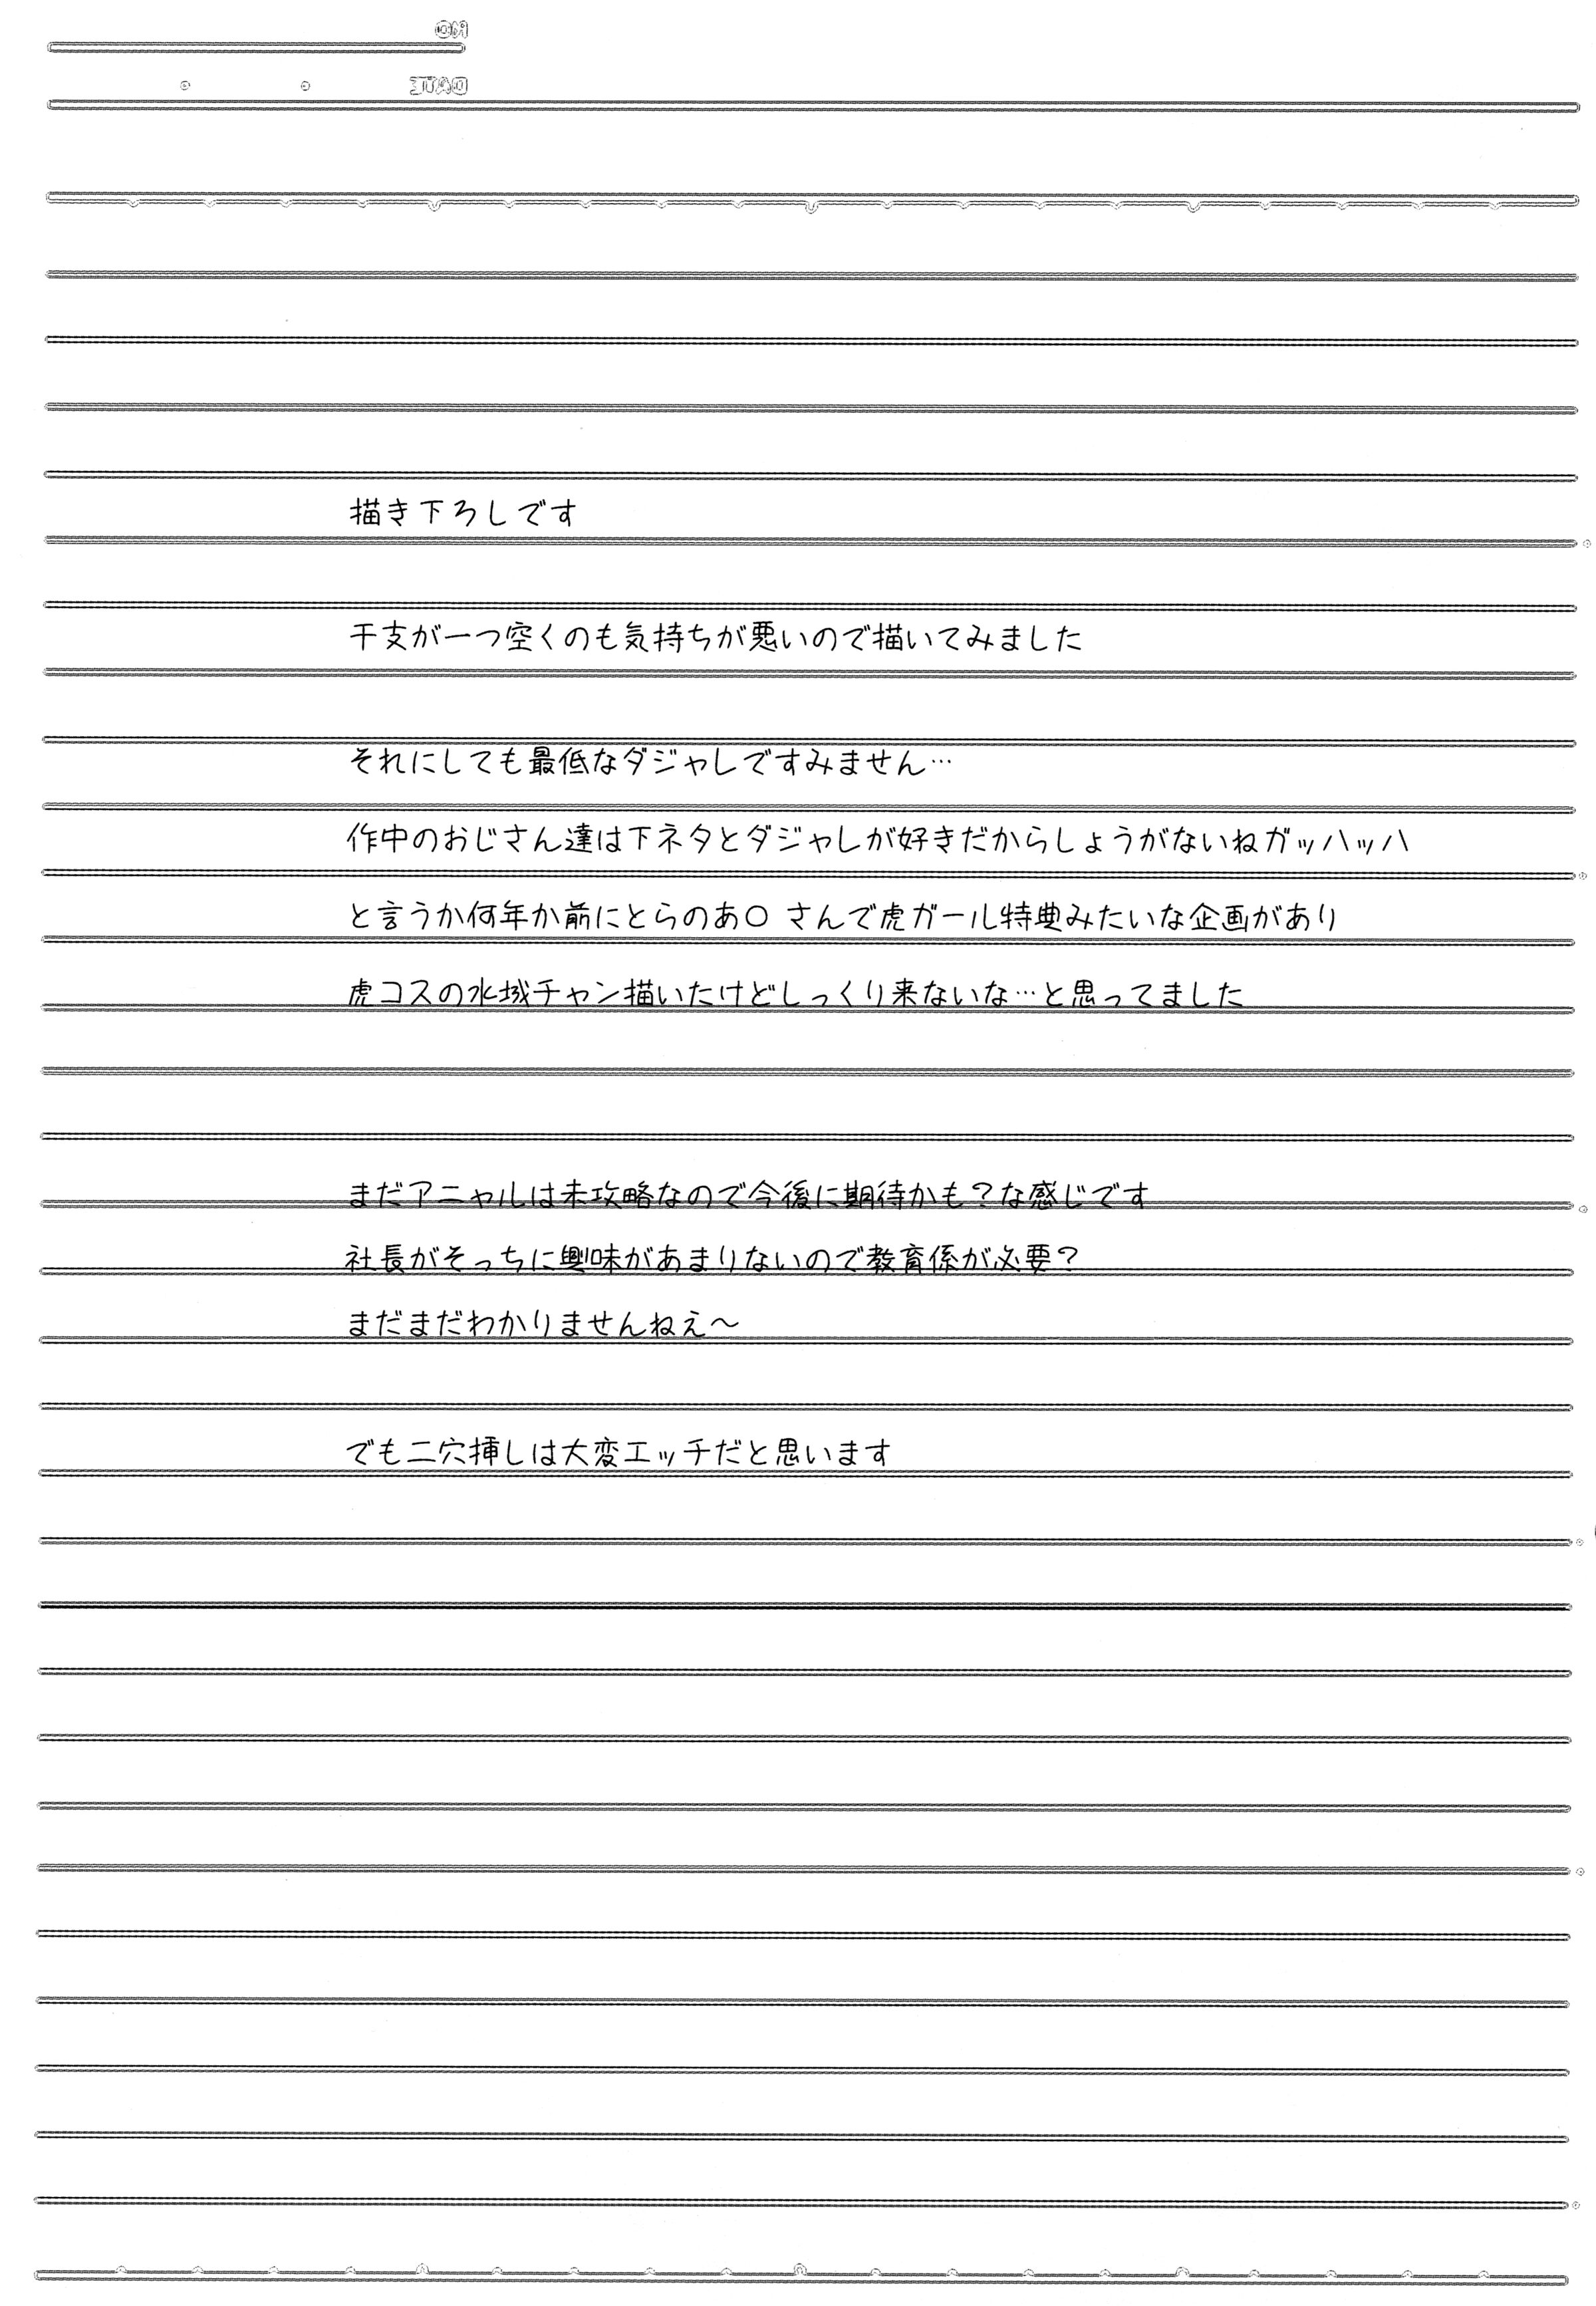 NO
DATE
描き下ろしです
干支が一つ空くのも気持ちが悪いので描いてみました
それにしても最低なダジャレですみません…
作中のおじさん達は下ネタとダジャレが好きだからしょうがないねガッハッハ
と言うか何年か前にとらのあ〇 さんで虎ガール特典みたいな企画があり
虎コスの水城チャン描いたけどしっくり来ないな…と思ってました
まだアニャルは未攻略なので今後に期待かも?な感じです
社長がそっちに興味があまりないので教育係が必要?
まだまだわかりませんねえ~
でも二穴挿しは大変エッチだと思います